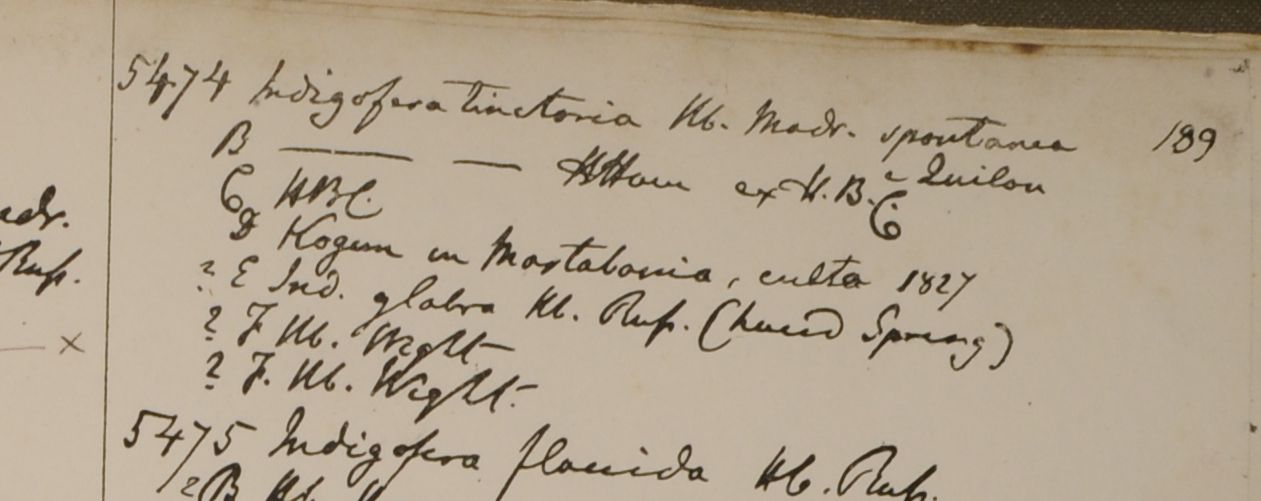 5474 Indigofera tinctoria Hb. Madr. spontanea 189
B —— — HHam ex H.B.C. e Quilon
C HBC.
D Kogun in Martabania, culta 1827
? E Ind. glabra Hb. Rup. (haud Spreng)
? F Hb. Wight
? F. Hb. Wight.
5475 Indigofera flaccida Hb. Rup.
? B Hb.
adr.
Rup.
— x